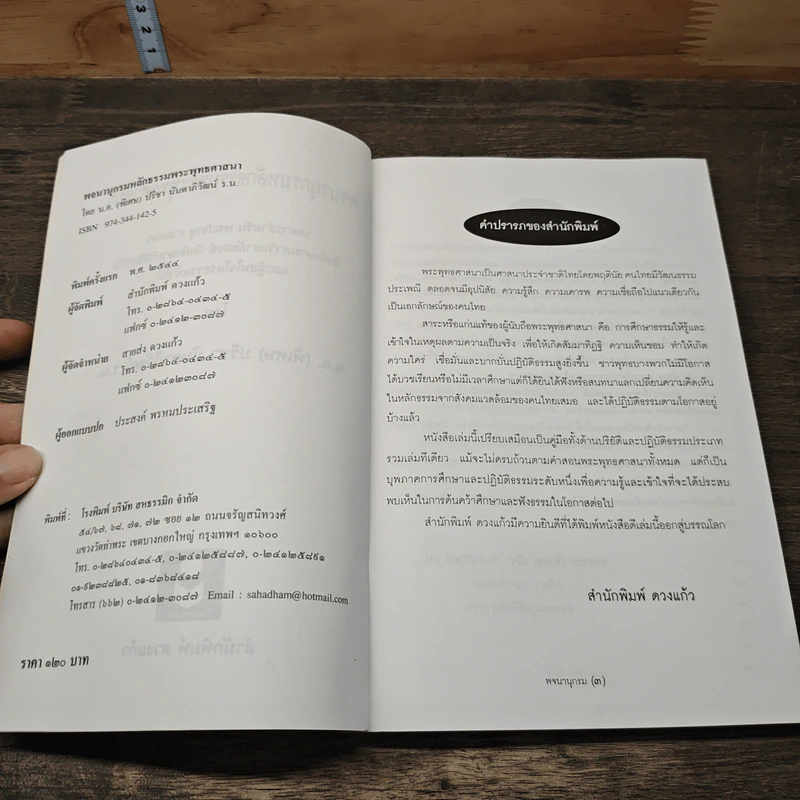 3
2
1
พจนานุกรมหลักธรรมพระพุทธศาสนา
โดย น.อ. (พิเศษ) ปรีชา นันตาภิวัฒน์ ร.น.
ISBN 974-344-142-5
พิมพ์ครั้งแรก พ.ศ. ๒๕๔๔
ผู้จัดพิมพ์ สำนักพิมพ์ ดวงแก้ว
โทร. ๐-๒๘๖๔-๐๔๓๔-๕
แฟกซ์ ๐-๒๔๑๒-๓๐๘๗
ผู้จัดจำหน่าย สายส่ง ดวงแก้ว
โทร. ๐-๒๘๖๔-๐๔๓๔-๕
แฟกซ์ ๐-๒๔๑๒๓๐๘๗
ผู้ออกแบบปก ประสงค์ พรหมประเสริฐ
พิมพ์ที่ : โรงพิมพ์ บริษัท สหธรรมิก จำกัด
๕๔/๖๗, ๖๘, ๗๑, ๗๒ ซอย ๑๒ ถนนจรัญสนิทวงศ์
แขวงวัดท่าพระ เขตบางกอกใหญ่ กรุงเทพฯ ๑๐๖๐๐
โทร. ๐-๒๘๖๔๐๔๓๔-๕, ๐-๒๔๑๒๕๘๘๗, ๐-๒๔๑๒๕๘๙๑
๐๑-๙๒๓๘๘๒๕, ๐๑-๘๓๖๘๔๑๘
โทรสาร (๖๖๒) ๐-๒๔๑๒-๓๐๘๗ Email : sahadham@hotmail.com
ราคา ๑๒๐ บาท
คำปรารภของสำนักพิมพ์
พระพุทธศาสนาเป็นศาสนาประจำชาติไทยโดยพฤตินัย คนไทยมีวัฒนธรรม
ประเพณี ตลอดจนมีอุปนิสัย ความรู้สึก ความเคารพ ความเชื่อถือไปแนวเดียวกัน
เป็นเอกลักษณ์ของคนไทย
สาระหรือแก่นแท้ของผู้นับถือพระพุทธศาสนา คือ การศึกษาธรรมให้รู้และ
เข้าใจในเหตุผลตามความเป็นจริง เพื่อให้เกิดสัมมาทิฏฐิ ความเห็นชอบ ทำให้เกิด
ความใคร่ เชื่อมั่นและบากบั่นปฏิบัติธรรมสูงยิ่งขึ้น ชาวพุทธบางพวกไม่มีโอกาส
ได้บวชเรียนหรือไม่มีเวลาศึกษาแต่ก็ได้ยินได้ฟังหรือสนทนาแลกเปลี่ยนความคิดเห็น
ในหลักธรรมจากสังคมแวดล้อมของคนไทยเสมอ และได้ปฏิบัติธรรมตามโอกาสอยู่
บ้างแล้ว
หนังสือเล่มนี้เปรียบเสมือนเป็นคู่มือทั้งด้านปริยัติและปฏิบัติธรรมประเภท
รวมเล่มทีเดียว แม้จะไม่ครบถ้วนตามคำสอนพระพุทธศาสนาทั้งหมด แต่ก็เป็น
บุพภาคการศึกษาและปฏิบัติธรรมระดับหนึ่งเพื่อความรู้และเข้าใจที่จะได้ประสบ
พบเห็นในการค้นคว้าศึกษาและฟังธรรมในโอกาสต่อไป
สำนักพิมพ์ ดวงแก้วมีความยินดีที่ได้พิมพ์หนังสือดีเล่มนี้ออกสู่บรรณโลก
สำนักพิมพ์ ดวงแก้ว
พจนานุกรม (๓)